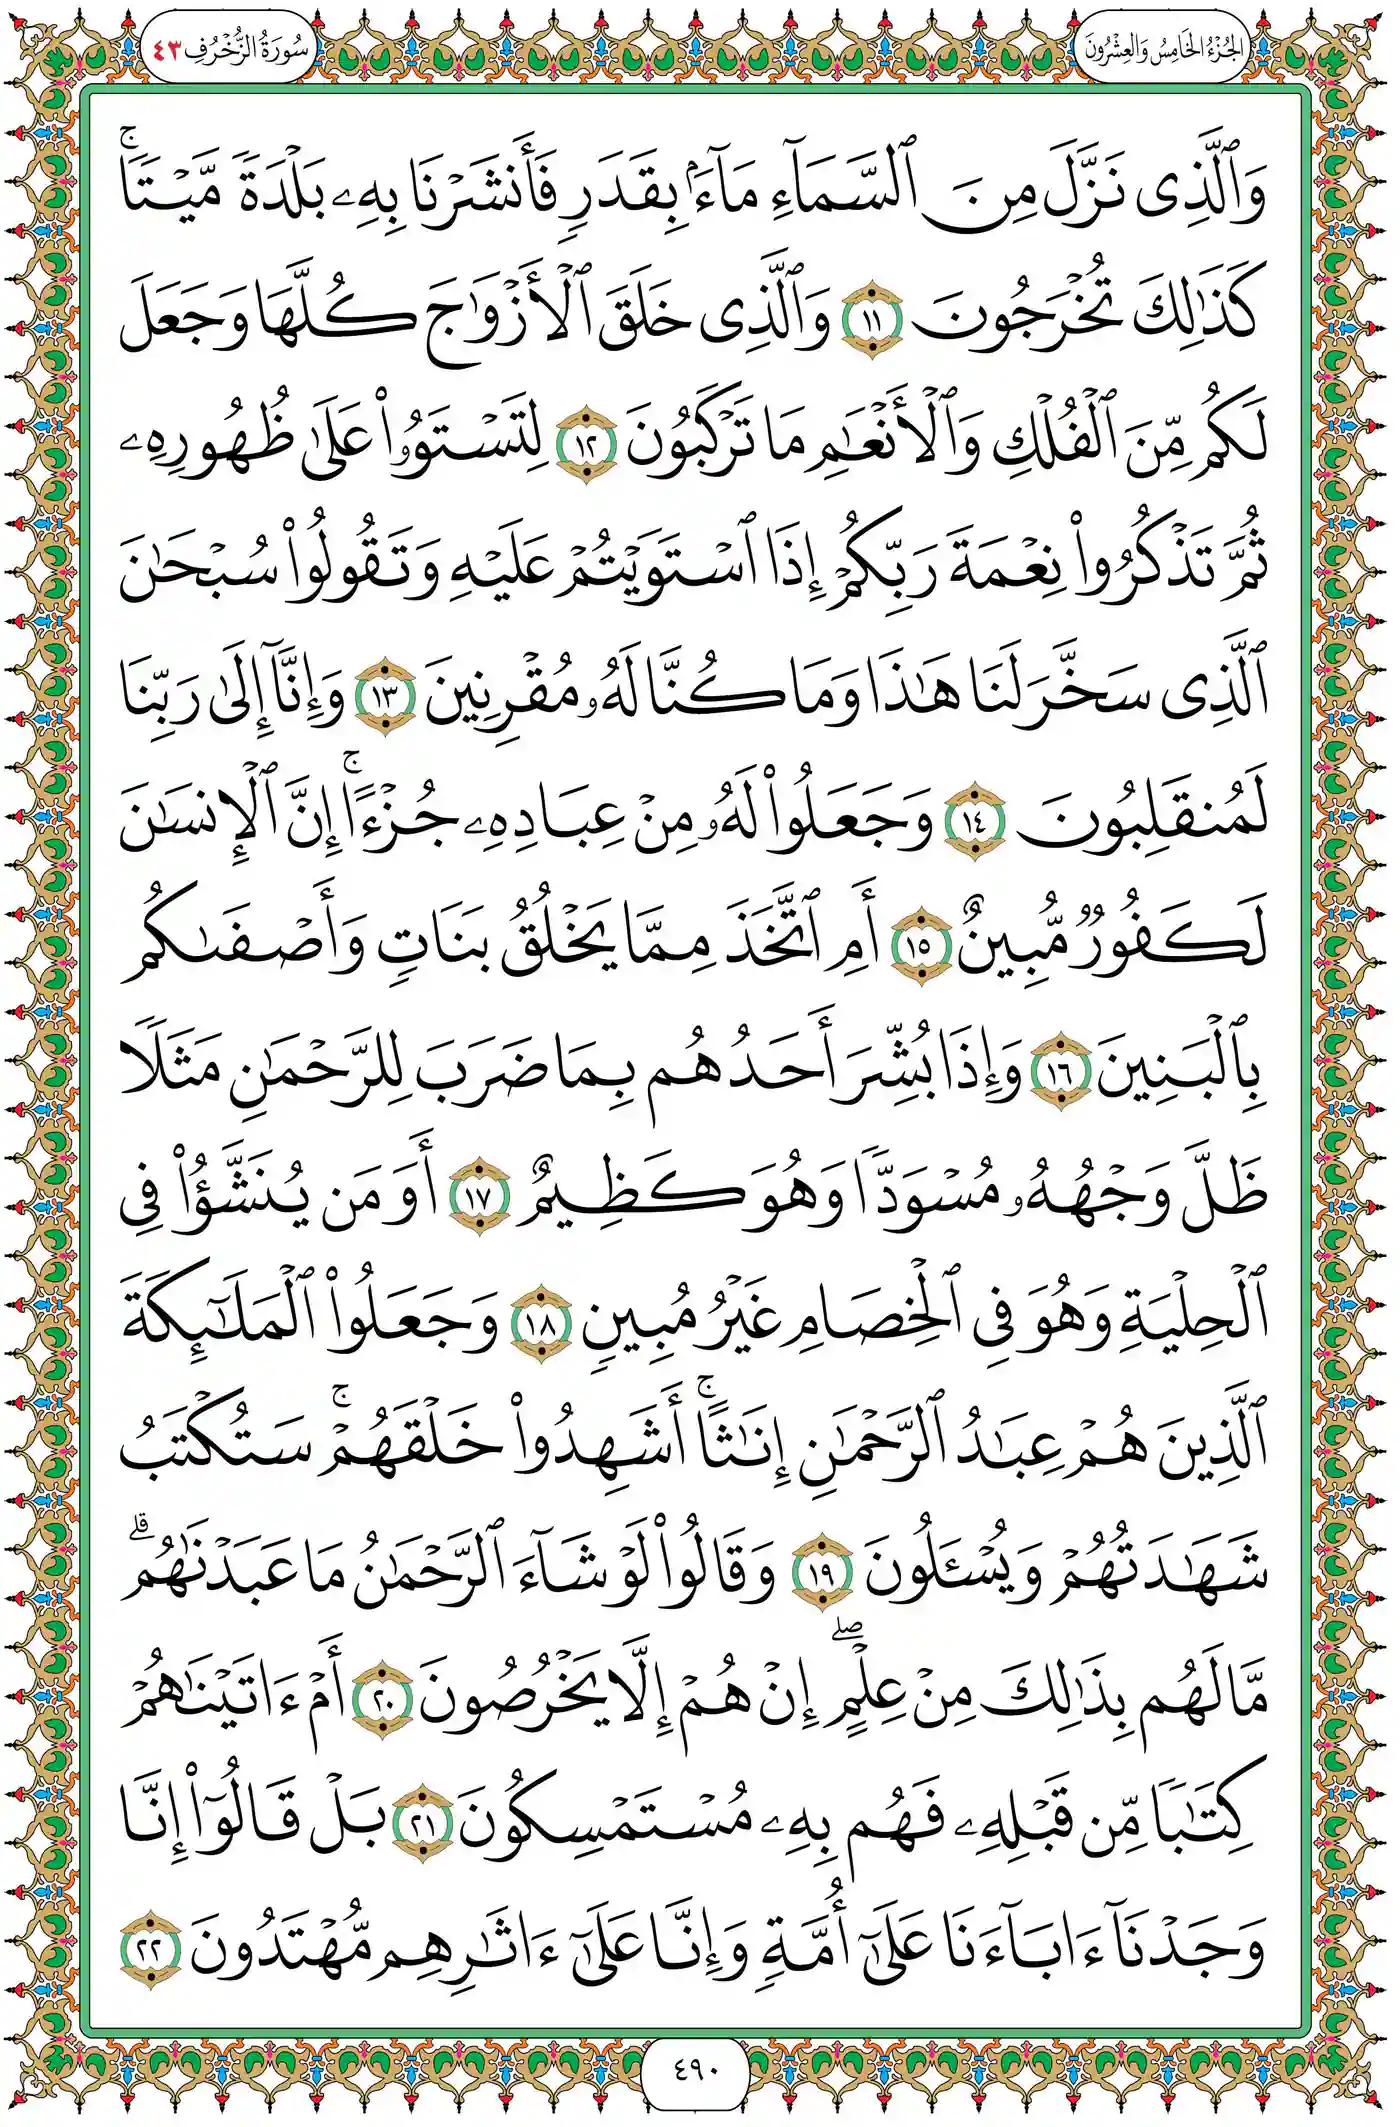 الجُزْءُ الخَامِسُ وَالعِشْرُونَ
سُورَةُ الزُّخْرُفِ ٤٣
وَٱلَّذِى نَزَّلَ مِنَ ٱلسَّمَآءِ مَآءَۢ بِقَدَرٍ فَأَنشَرْنَا بِهِۦ بَلْدَةً مَّيْتًاۚ
كَذَٰلِكَ تُخْرَجُونَ ١١ وَٱلَّذِى خَلَقَ ٱلْأَزْوَٰجَ كُلَّهَا وَجَعَلَ
لَكُم مِّنَ ٱلْفُلْكِ وَٱلْأَنْعَٰمِ مَا تَرْكَبُونَ ١٢ لِتَسْتَوُۥا۟ عَلَىٰ ظُهُورِهِۦ
ثُمَّ تَذْكُرُوا۟ نِعْمَةَ رَبِّكُمْ إِذَا ٱسْتَوَيْتُمْ عَلَيْهِ وَتَقُولُوا۟ سُبْحَٰنَ
ٱلَّذِى سَخَّرَ لَنَا هَٰذَا وَمَا كُنَّا لَهُۥ مُقْرِنِينَ ١٣ وَإِنَّآ إِلَىٰ رَبِّنَا
لَمُنقَلِبُونَ ١٤ وَجَعَلُوا۟ لَهُۥ مِنْ عِبَادِهِۦ جُزْءًاۚ إِنَّ ٱلْإِنسَٰنَ
لَكَفُورٌ مُّبِينٌ ١٥ أَمِ ٱتَّخَذَ مِمَّا يَخْلُقُ بَنَاتٍ وَأَصْفَىٰكُم
بِٱلْبَنِينَ ١٦ وَإِذَا بُشِّرَ أَحَدُهُم بِمَا ضَرَبَ لِلرَّحْمَٰنِ مَثَلًا
ظَلَّ وَجْهُهُۥ مُسْوَدًّا وَهُوَ كَظِيمٌ ١٧ أَوَمَن يُنَشَّؤُا۟ فِى
ٱلْحِلْيَةِ وَهُوَ فِى ٱلْخِصَامِ غَيْرُ مُبِينٍ ١٨ وَجَعَلُوا۟ ٱلْمَلَٰٓئِكَةَ
ٱلَّذِينَ هُمْ عِبَٰدُ ٱلرَّحْمَٰنِ إِنَٰثًاۚ أَشَهِدُوا۟ خَلْقَهُمْۚ سَتُكْتَبُ
شَهَٰدَتُهُمْ وَيُسْـَٔلُونَ ١٩ وَقَالُوا۟ لَوْ شَآءَ ٱلرَّحْمَٰنُ مَا عَبَدْنَٰهُمۗ
مَّا لَهُم بِذَٰلِكَ مِنْ عِلْمٍۖ إِنْ هُمْ إِلَّا يَخْرُصُونَ ٢٠ أَمْ ءَاتَيْنَٰهُمْ
كِتَٰبًا مِّن قَبْلِهِۦ فَهُم بِهِۦ مُسْتَمْسِكُونَ ٢١ بَلْ قَالُوٓا۟ إِنَّا
وَجَدْنَآ ءَابَآءَنَا عَلَىٰٓ أُمَّةٍ وَإِنَّا عَلَىٰٓ ءَاثَٰرِهِم مُّهْتَدُونَ ٢٢
٤٩٠